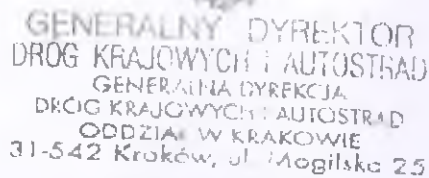 GENERALNY DYREKTOR
DRÓG KRAJOWYCH I AUTOSTRAD
GENERALNA DYREKCJA
DRÓG KRAJOWYCH I AUTOSTRAD
ODDZIAŁ W KRAKOWIE
31-542 Kraków, ul. Mogilska 25